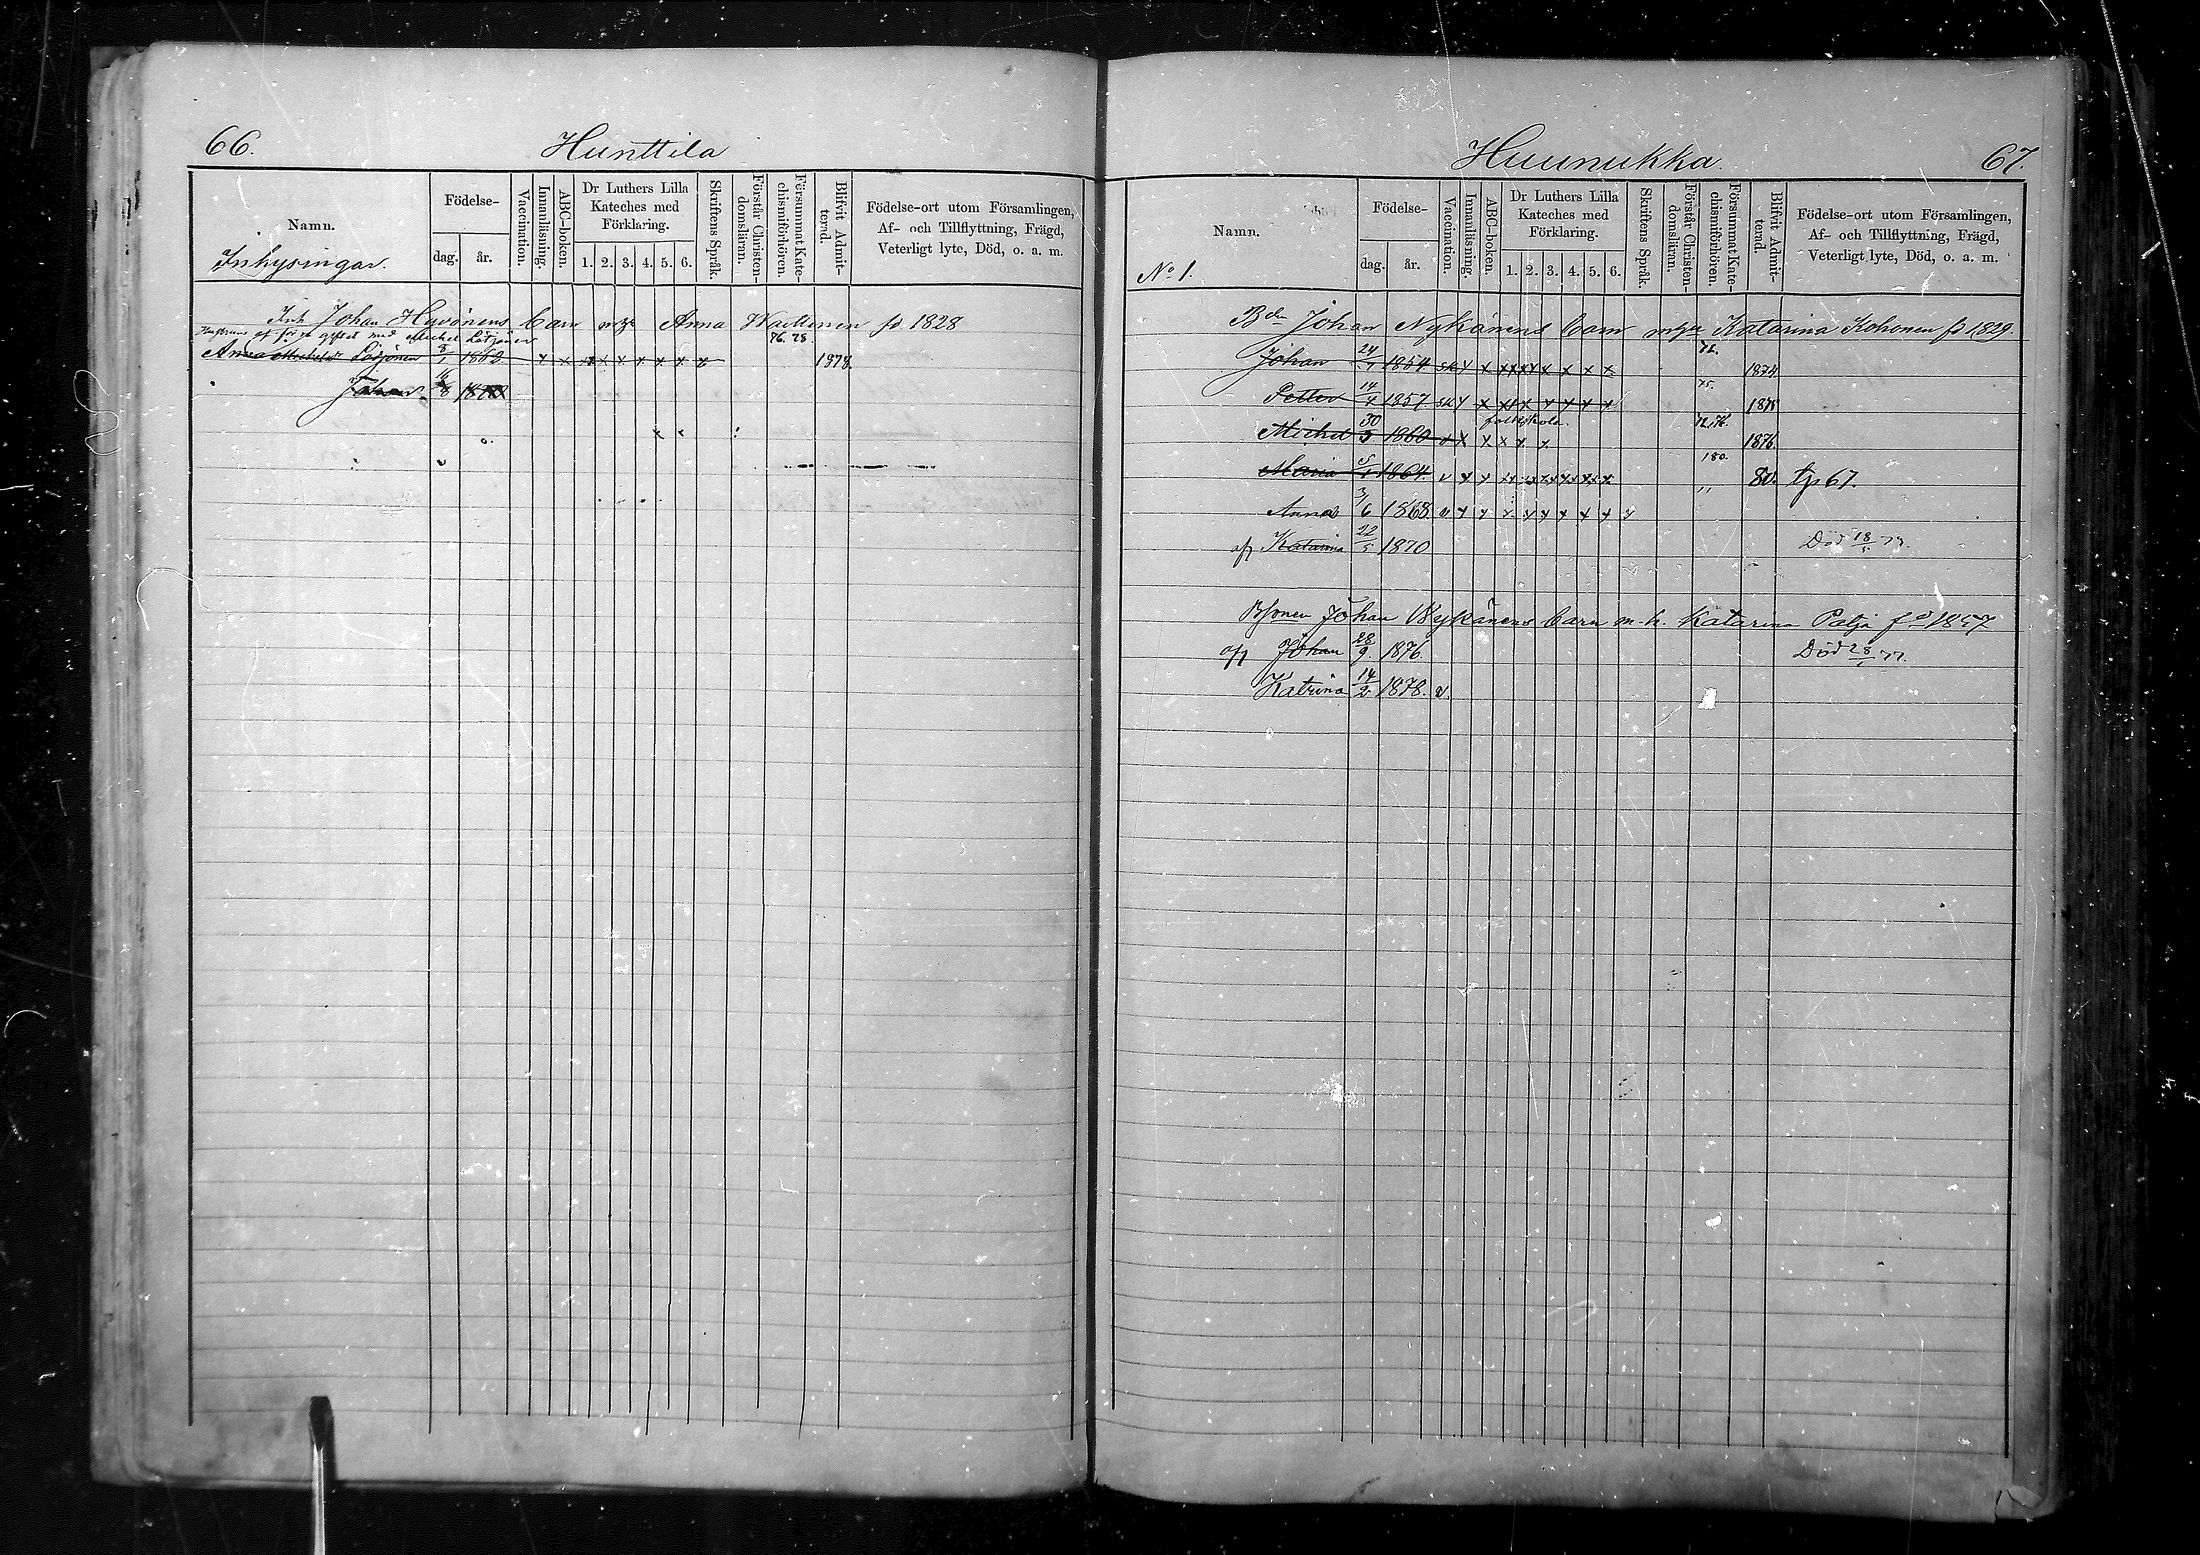 66. Hunttila
Namn. Födelse- dag. år. Vaccination. Innanläsning. ABC-boken. Dr Luthers Lilla Kateches med Förklaring. 1. 2. 3. 4. 5. 6. Skriftens Språk. Förstår Christendomsläran. Försummat Katechismiförhören. Blifvit Admitterad. Födelse-ort utom Församlingen, Af- och Tillflyttning, Frägd, Veterligt lyte, Död, o. a. m.
Inhysingar.
Inh Johan Hyvönens barn Anna fd 1828
gift med Michel Lötjönen 76. 78.
Anna Lötjönen 8/1 1862 x x x x x x x x 1878.
Johan 16/8
67. Huunukka.
Namn. Födelse- dag. år. Vaccination. Innanläsning. ABC-boken. Dr Luthers Lilla Kateches med Förklaring. 1. 2. 3. 4. 5. 6. Skriftens Språk. Förstår Christendomsläran. Försummat Katechismiförhören. Blifvit Admitterad. Födelse-ort utom Församlingen, Af- och Tillflyttning, Frägd, Veterligt lyte, Död, o. a. m.
No 1.
Bden Johan Nykänens barn Katarina Kohonen fd 1829.
Johan 24/1 1854 x x x x x x 72. 1874
Petter 14/4 1857 x x x x x x 75. 1875
folkskola.
Michel 30/5 1860 x x x x x 1876.
Maria 5/1 1864. v x x x x x x x x 180. 80. tp 67.
Anna 3/6 1868 v x x x x x x x x x
af Katarina 22/5 1870 Död 18/5 73.
Bsonen Johan Nykänens barn m. h. Katarina Patja fd 1857
af Johan 28/9 1876. Död 28/1 77.
Katrina 14/2 1878. v.